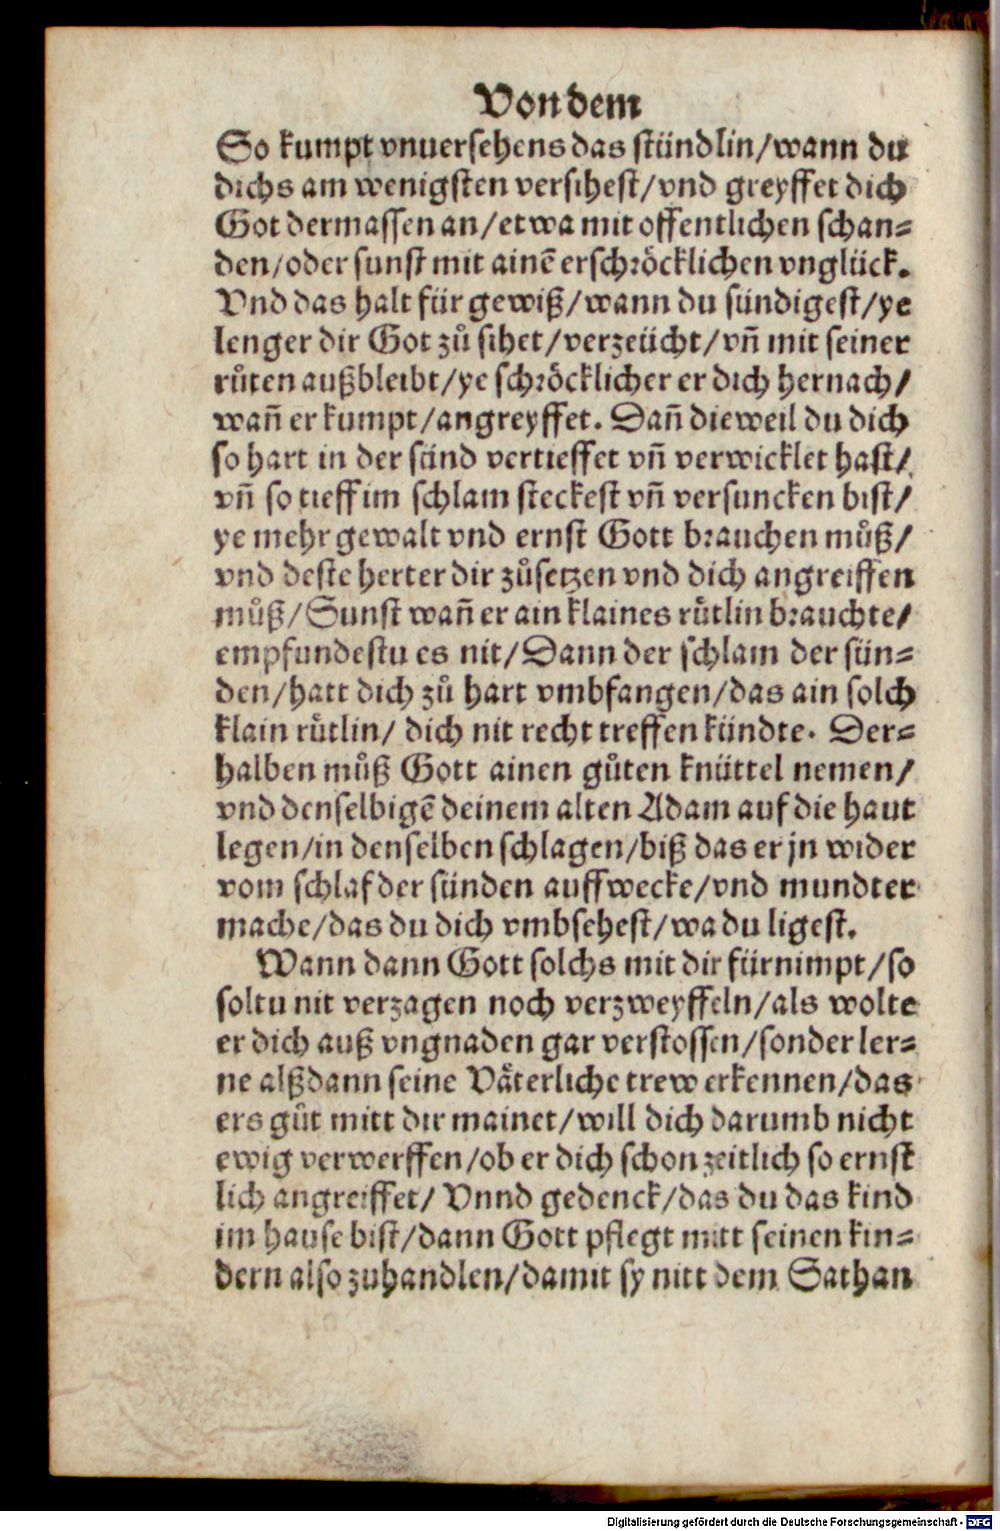 Von dem
So kumpt vnuersehens das stündlin/wann du
dichs am wenigsten versihest/vnd greyffet dich
Got dermassen an/etwa mit offentlichen schan-
den/oder sunst mit ainē erschröcklichen vnglück.
Vnd das halt für gewiß/wann du sündigest/ye
lenger dir Got zů sihet/verzeücht/vñ mit seiner
růten außbleibt/ye schröcklicher er dich hernach/
wañ er kumpt/angreyffet. Dañ dieweil du dich
so hart in der sünd vertieffet vñ verwicklet hast/
vñ so tieff im schlam steckest vñ versuncken bist/
ye mehr gewalt vnd ernst Gott brauchen můß/
vnd deste herter dir zůsetzen vnd dich angreiffen
můß/Sunst wañ er ain klaines růtlin brauchte/
empfundestu es nit/Dann der schlam der sün-
den/hatt dich zů hart vmbfangen/das ain solch
klain růtlin/ dich nit recht treffen kündte. Der-
halben můß Gott ainen gůten knüttel nemen/
vnd denselbigē deinem alten Adam auf die haut
legen/in denselben schlagen/biß das er jn wider
vom schlaf der sünden auffwecke/vnd mundter
mache/das du dich vmbsehest/wa du ligest.
Wann dann Gott solchs mit dir fürnimpt/so
soltu nit verzagen noch verzweyffeln/als wolte
er dich auß vngnaden gar verstossen/sonder ler-
ne alßdann seine Väterliche trew erkennen/das
ers gůt mitt dir mainet/will dich darumb nicht
ewig verwerffen/ob er dich schon zeitlich so ernst
lich angreiffet/ Vnnd gedenck/das du das kind
im hause bist/dann Gott pflegt mitt seinen kin-
dern also zuhandlen/damit sy nitt dem Sathan
Digitalisierung gefördert durch die Deutsche Forschungsgemeinschaft - DFG